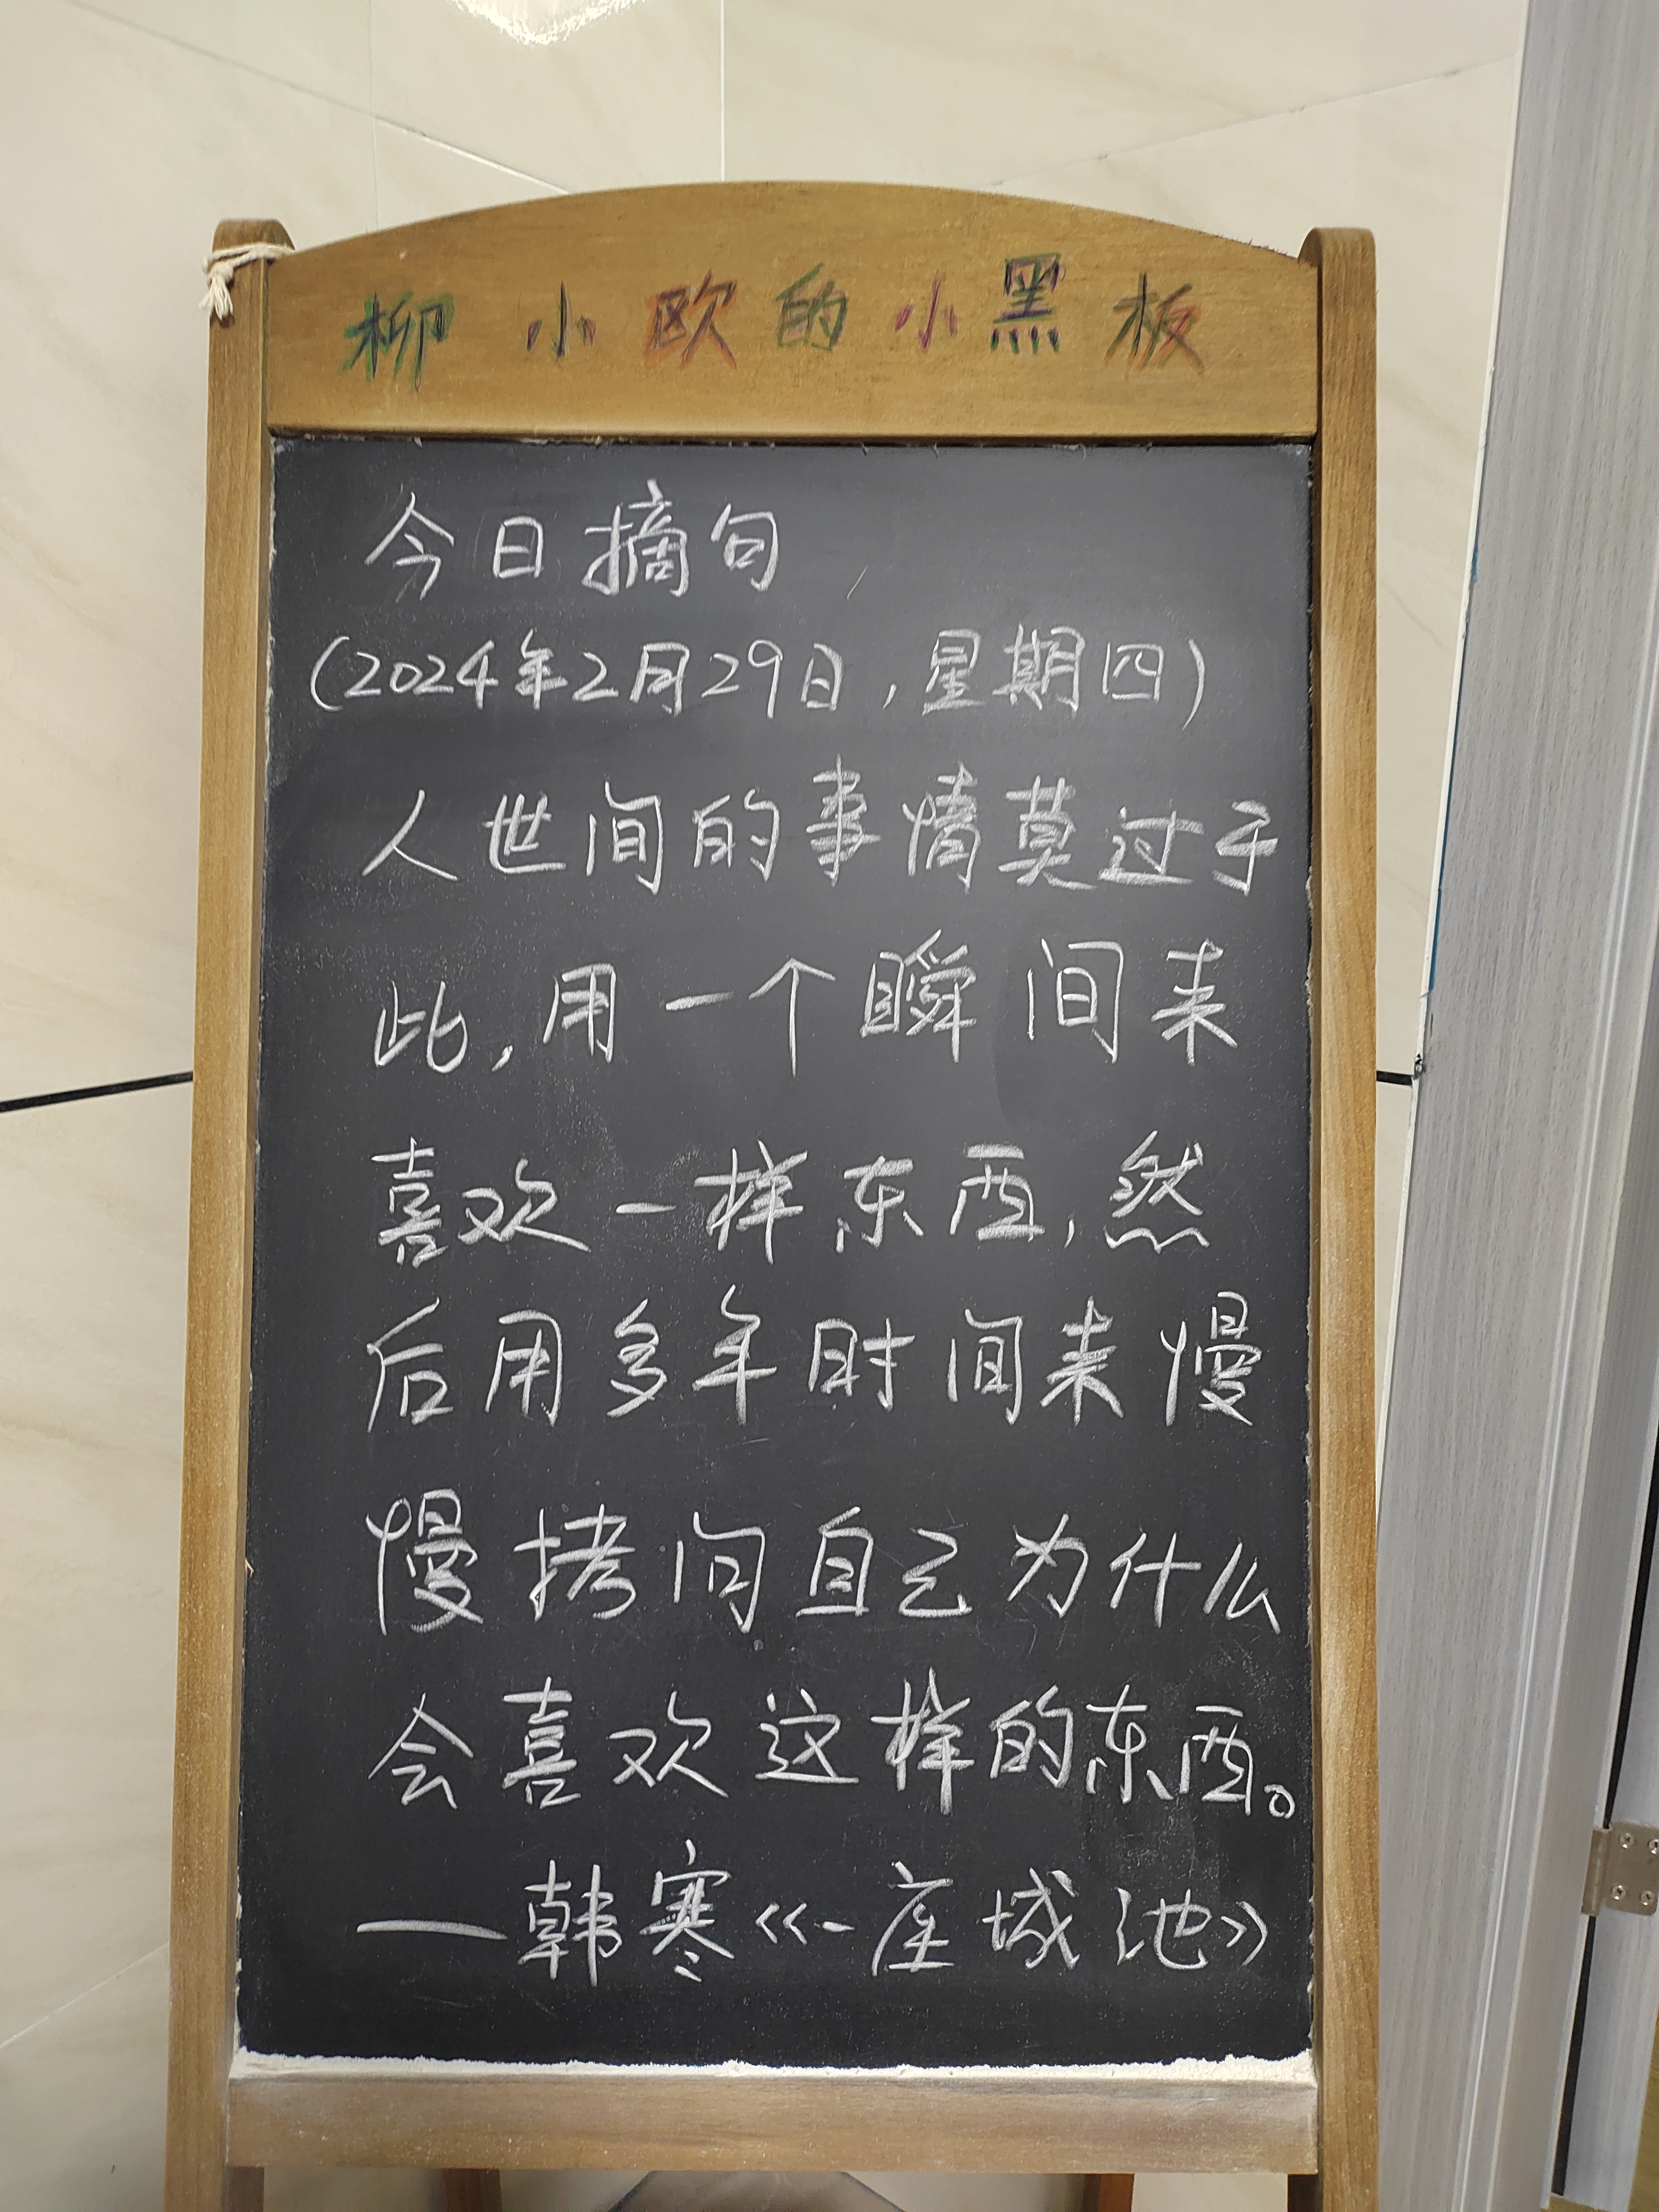 柳小欧的小黑板
今日摘句
(2024年2月29日,星期四)
人世间的事情莫过于
此,用一个瞬间来
喜欢一样东西,然
后用多年时间来慢
慢拷问自己为什么
会喜欢这样的东西。
—韩寒《一座城池》